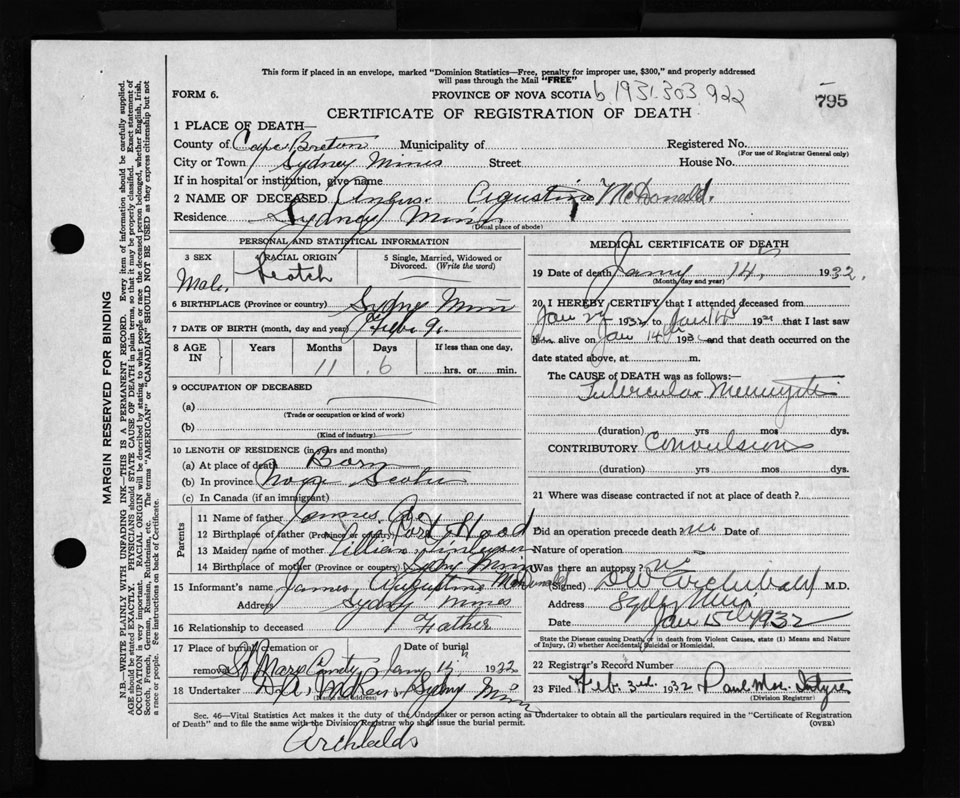 This form if placed in an envelope, marked "Dominion Statistics—Free, penalty for improper use, $300," and properly addressed
will pass through the Mail "FREE"
FORM 6. PROVINCE OF NOVA SCOTIA b.1931.303.922 795
CERTIFICATE OF REGISTRATION OF DEATH
1 PLACE OF DEATH—
County of Cape Breton Municipality of Registered No.
(For use of Registrar General only)
City or Town Sydney Mines Street House No.
If in hospital or institution, give name
2 NAME OF DECEASED Angus Augustine McDonald.
Residence Sydney Mines
(Usual place of abode)
PERSONAL AND STATISTICAL INFORMATION
3 SEX 4 RACIAL ORIGIN 5 Single, Married, Widowed or
Divorced. (Write the word)
Male. Scotch
6 BIRTHPLACE (Province or country) Sydney Mines
7 DATE OF BIRTH (month, day and year)
8 AGE IN Years Months Days If less than one day,
11 6 hrs. or min.
9 OCCUPATION OF DECEASED
(a)
(Trade or occupation or kind of work)
(b)
(Kind of industry)
10 LENGTH OF RESIDENCE (in years and months)
(a) At place of death Born
(b) In province Nova Scotia
(c) In Canada (if an immigrant)
Parents
11 Name of father James
12 Birthplace of father (Province or country) Port Hood
13 Maiden name of mother Lillian
14 Birthplace of mother (Province or country) Sydney Mines
15 Informant's name James Augustine McDonald
Address Sydney Mines
16 Relationship to deceased Father
17 Place of burial, cremation or Date of burial
removal St Marys 1932
18 Undertaker Sydney Mines
MEDICAL CERTIFICATE OF DEATH
19 Date of death Jany 14 1932.
(Month, day and year)
20 I HEREBY CERTIFY that I attended deceased from
Jan 1932 to Jan 193 that I last saw
alive on Jan 14 193 and that death occurred on the
date stated above, at m.
The CAUSE OF DEATH was as follows:—
Tubercular Meningitis
(duration) yrs mos dys.
CONTRIBUTORY Convulsions
(duration) yrs mos dys.
21 Where was disease contracted if not at place of death?
Did an operation precede death? no Date of
Nature of operation
Was there an autopsy? no
(Signed) Archibald M.D.
Address Sydney Mines
Date Jan 15 1932
State the Disease causing Death, or in death from Violent Causes, state (1) Means and Nature
of Injury, (2) whether Accidental, Suicidal or Homicidal.
22 Registrar's Record Number
23 Filed Feb. 3rd. 1932 Paul
(Division Registrar)
Sec. 46—Vital Statistics Act makes it the duty of the Undertaker or person acting as Undertaker to obtain all the particulars required in the "Certificate of Registration
of Death" and to file the same with the Division Registrar who shall issue the burial permit. (OVER)
Archibalds
MARGIN RESERVED FOR BINDING
N.B.—WRITE PLAINLY WITH UNFADING INK—THIS IS A PERMANENT RECORD. Every item of information should be carefully supplied.
AGE should be stated EXACTLY. PHYSICIANS should STATE CAUSE OF DEATH in plain terms, so that it may be properly classified. Exact statement of
OCCUPATION is very important. RACIAL ORIGIN will be described by stating to what people or race the deceased person belonged, whether English, Irish,
Scotch, French, German, Russian, Ruthenian, etc. The terms "AMERICAN" or "CANADIAN" SHOULD NOT BE USED as they express citizenship but not
a race or people. See instructions on back of Certificate.